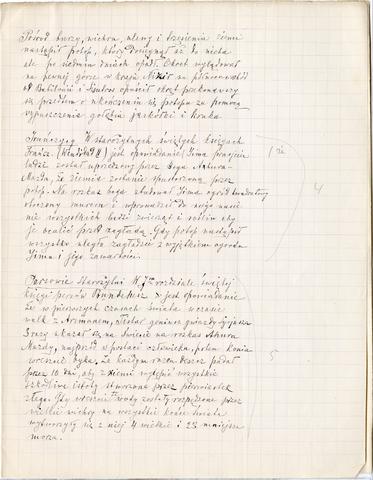 Pośród burzy, wichru, ulewy i trzęsienia ziemi
nastąpił potop, który dosięgnął aż do nieba
ale po siedmiu dniach opadł. Okręt wylądował
na pewnej górze w kraju Nizir na północ-wschód
od Babilonu i opuścił okręt przekonawszy
się przedtem o ukończeniu się potopu za pomocą
wypuszczenia gołębia jaskółki i kruka.
Irańczycy W starożytnych świętych księgach
jest opowiadanie, Jima praojciec
ludzi został uprzedzony przez boga Ahura-
Mazda, że ziemia zostanie spustoszona przez
potop. Na rozkaz boga zbudował Jima ogród kwadratowy
otoczony murem i wprowadził do niego nasie-
nie wszystkich ludzi zwierząt i roślin aby
je ocalić przed zagładą. Gdy potop nastąpił
wszystko uległo zagładzie z wyjątkiem ogrodu
Jima i jego zawartości.
1 sze
4
Persowie Starożytni W 7ym rozdziale świętej
księgi persów Bundehesz jest opowiadanie
że w pierwszych czasach świata w czasie
walk z Arimanem, Tistar geniusz gwiazdy Syriusza
3 razy ukazał się na świecie na rozkaz Ahura
Mazdy, najprzód w postaci człowieka, potem konia
wreszcie byka. Za każdym razem deszcz padał
przez 10 dni, aby z ziemi wytępić wszystkie
szkodliwe istoty stworzone przez pierwiastek
złego. Gdy wreszcie wody zostały rozpędzone przez
wielkie wichry na wszystkie końce świata
wytworzyły się z niej 4 wielkie i 23 mniejsze
morza.
5